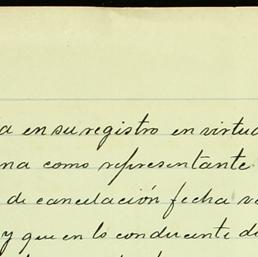 a en su registro en virtud
na como representante
de cancelación fecha ve
y que en lo conducente di